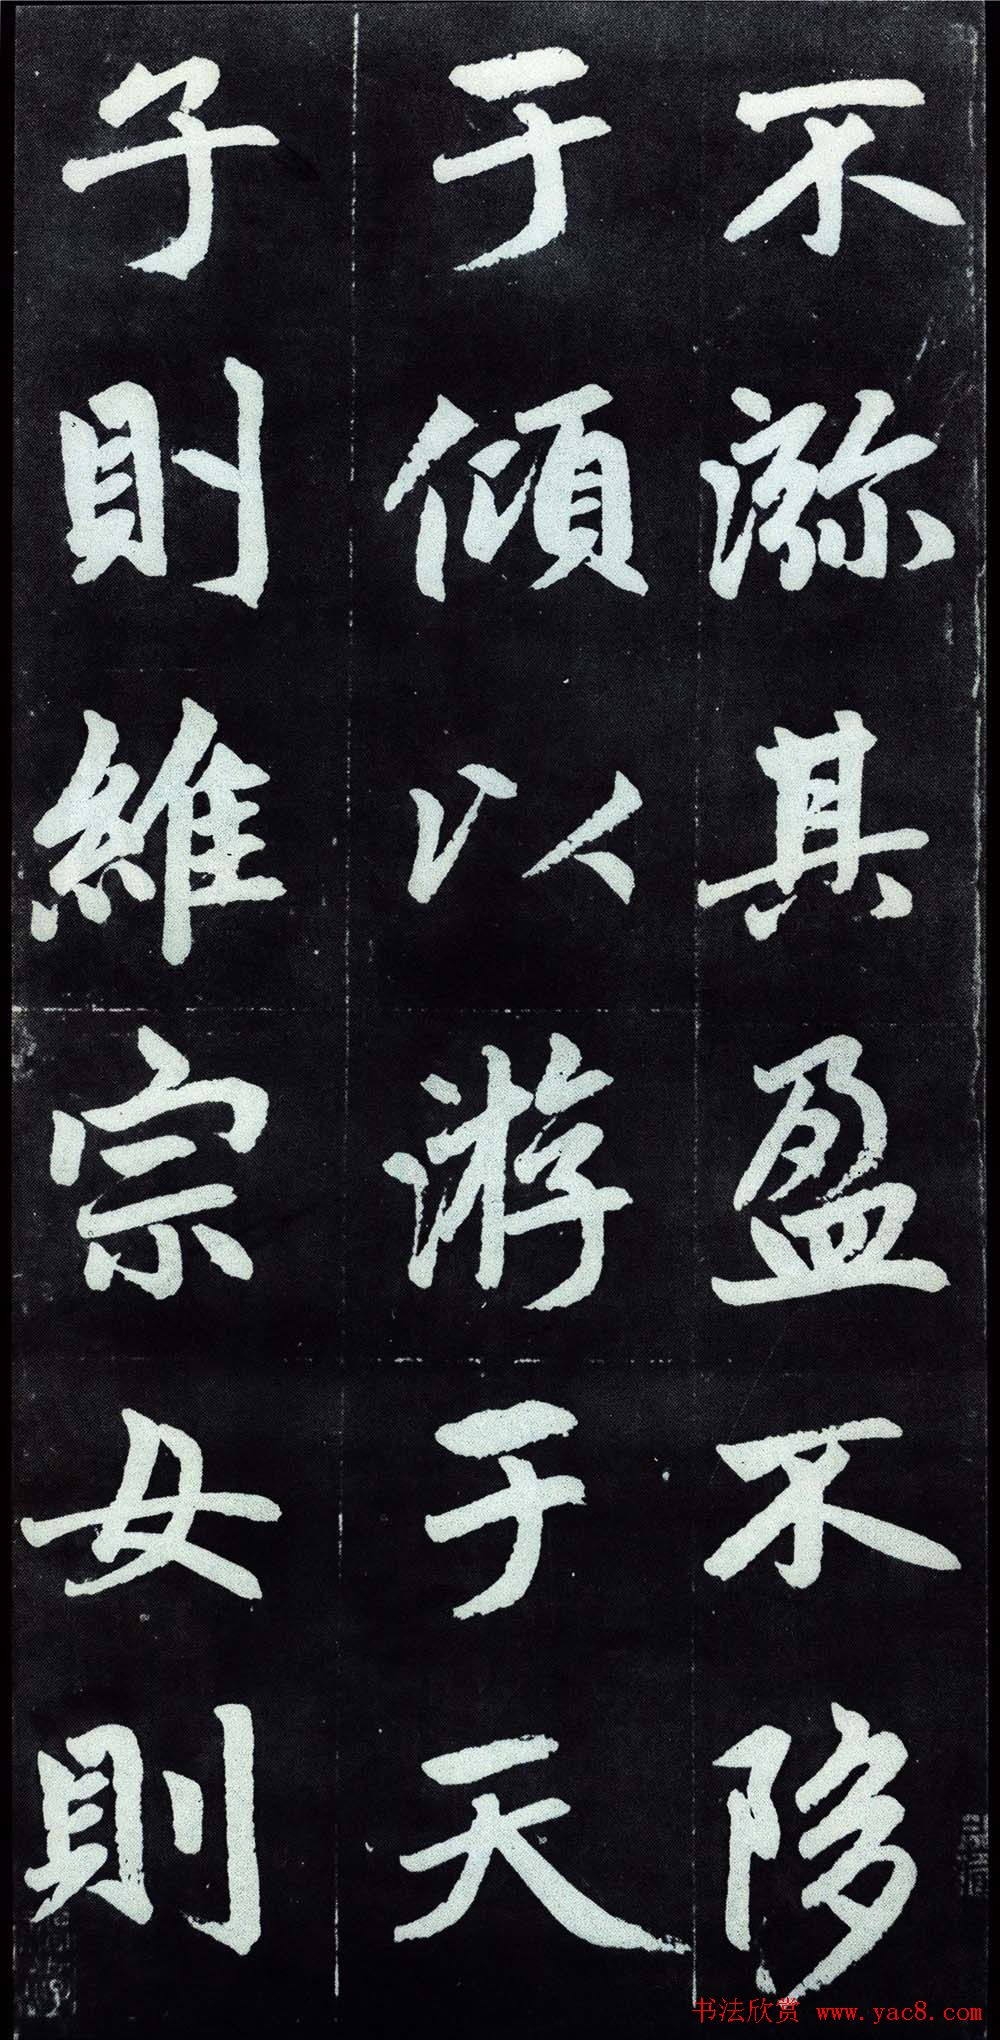 不㳽其盈不陊
于傾以游于天
子則維宗女則
书法欣赏 www.yac8.com